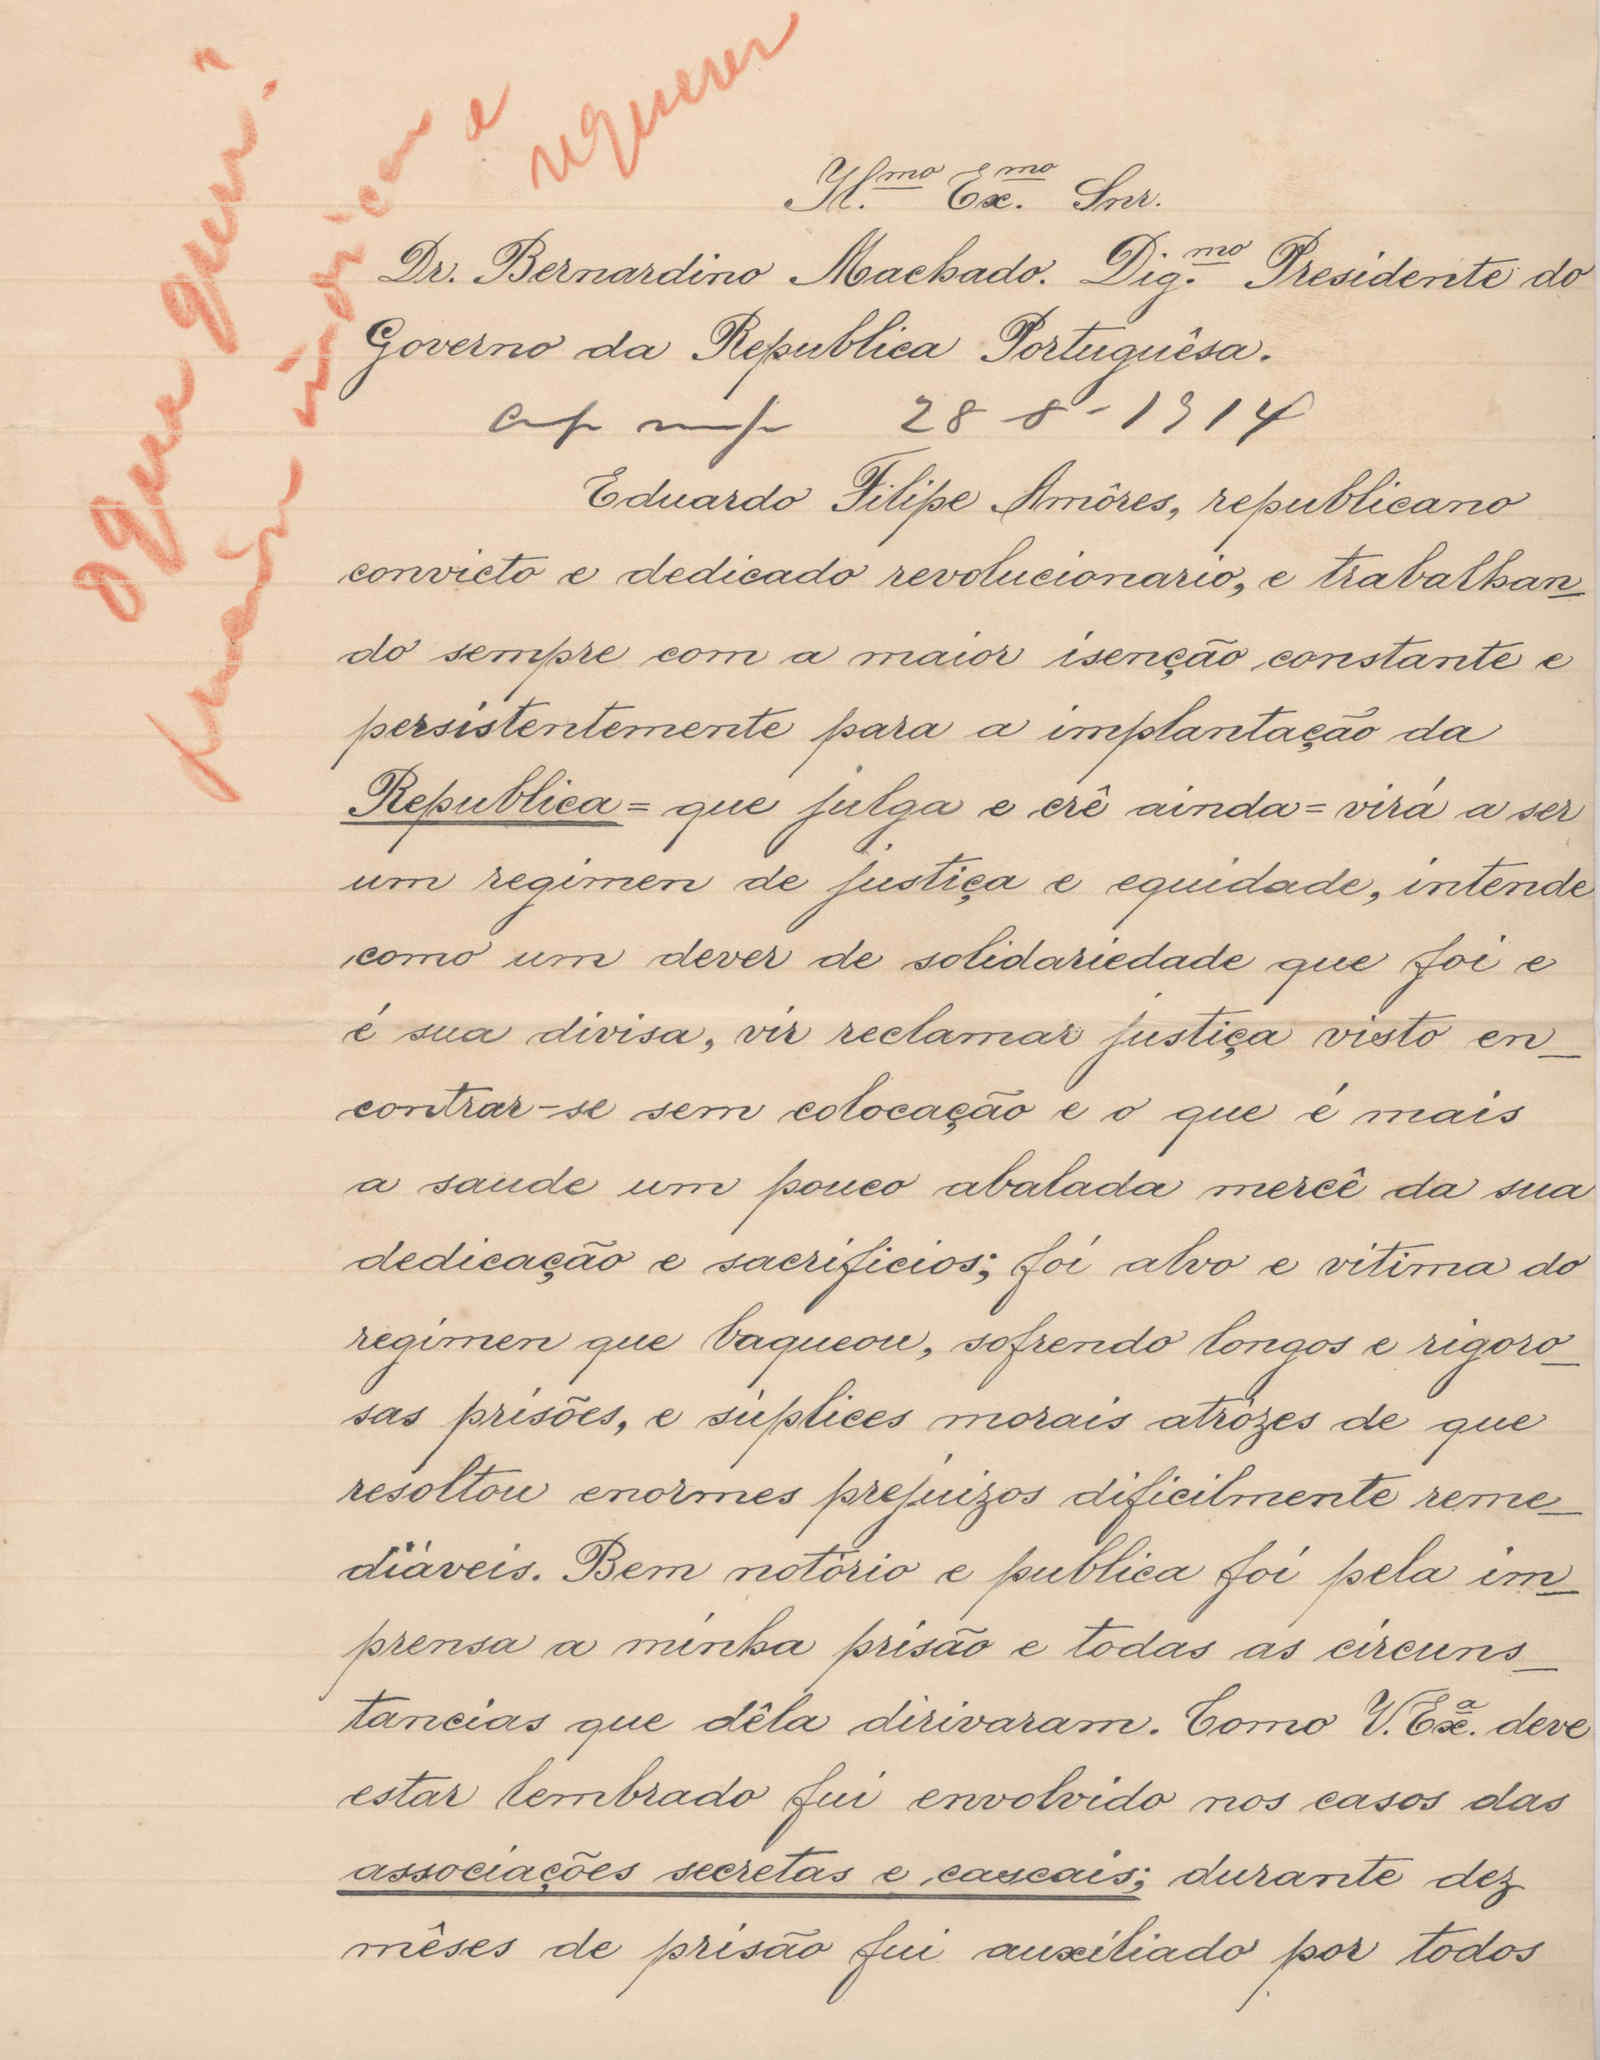 O que quer?
indicar e
requerer
Il.mo Ex.mo Snr.
Dr. Bernardino Machado. Dig.mo Presidente do
Governo da Republica Portuguêsa.
28-8-1914
Eduardo Filipe Amôres, republicano
convicto e dedicado revolucionario, e trabalhan_
do sempre com a maior isenção constante e
persistentemente para a implantação da
Republica = que julga e crê ainda = virá a ser
um regimen de justiça e equidade, intende
como um dever de solidariedade que foi e
é sua divisa, vir reclamar justiça visto en_
contrar-se sem colocação e o que é mais
a saude um pouco abalada mercê da sua
dedicação e sacrificios; foi alvo e vitima do
regimen que baqueou, sofrendo longos e rigoro_
sas prisões, e súplices morais atrózes de que
resoltou enormes prejuizos dificilmente reme_
diáveis. Bem notório e publica foi pela im_
prensa a minha prisão e todas as circuns_
tancias que dêla dirivaram. Como V. Ex.a deve
estar lembrado fui envolvido nos casos das
associações secretas e cascais; durante dez
mêses de prisão fui auxiliado por todos